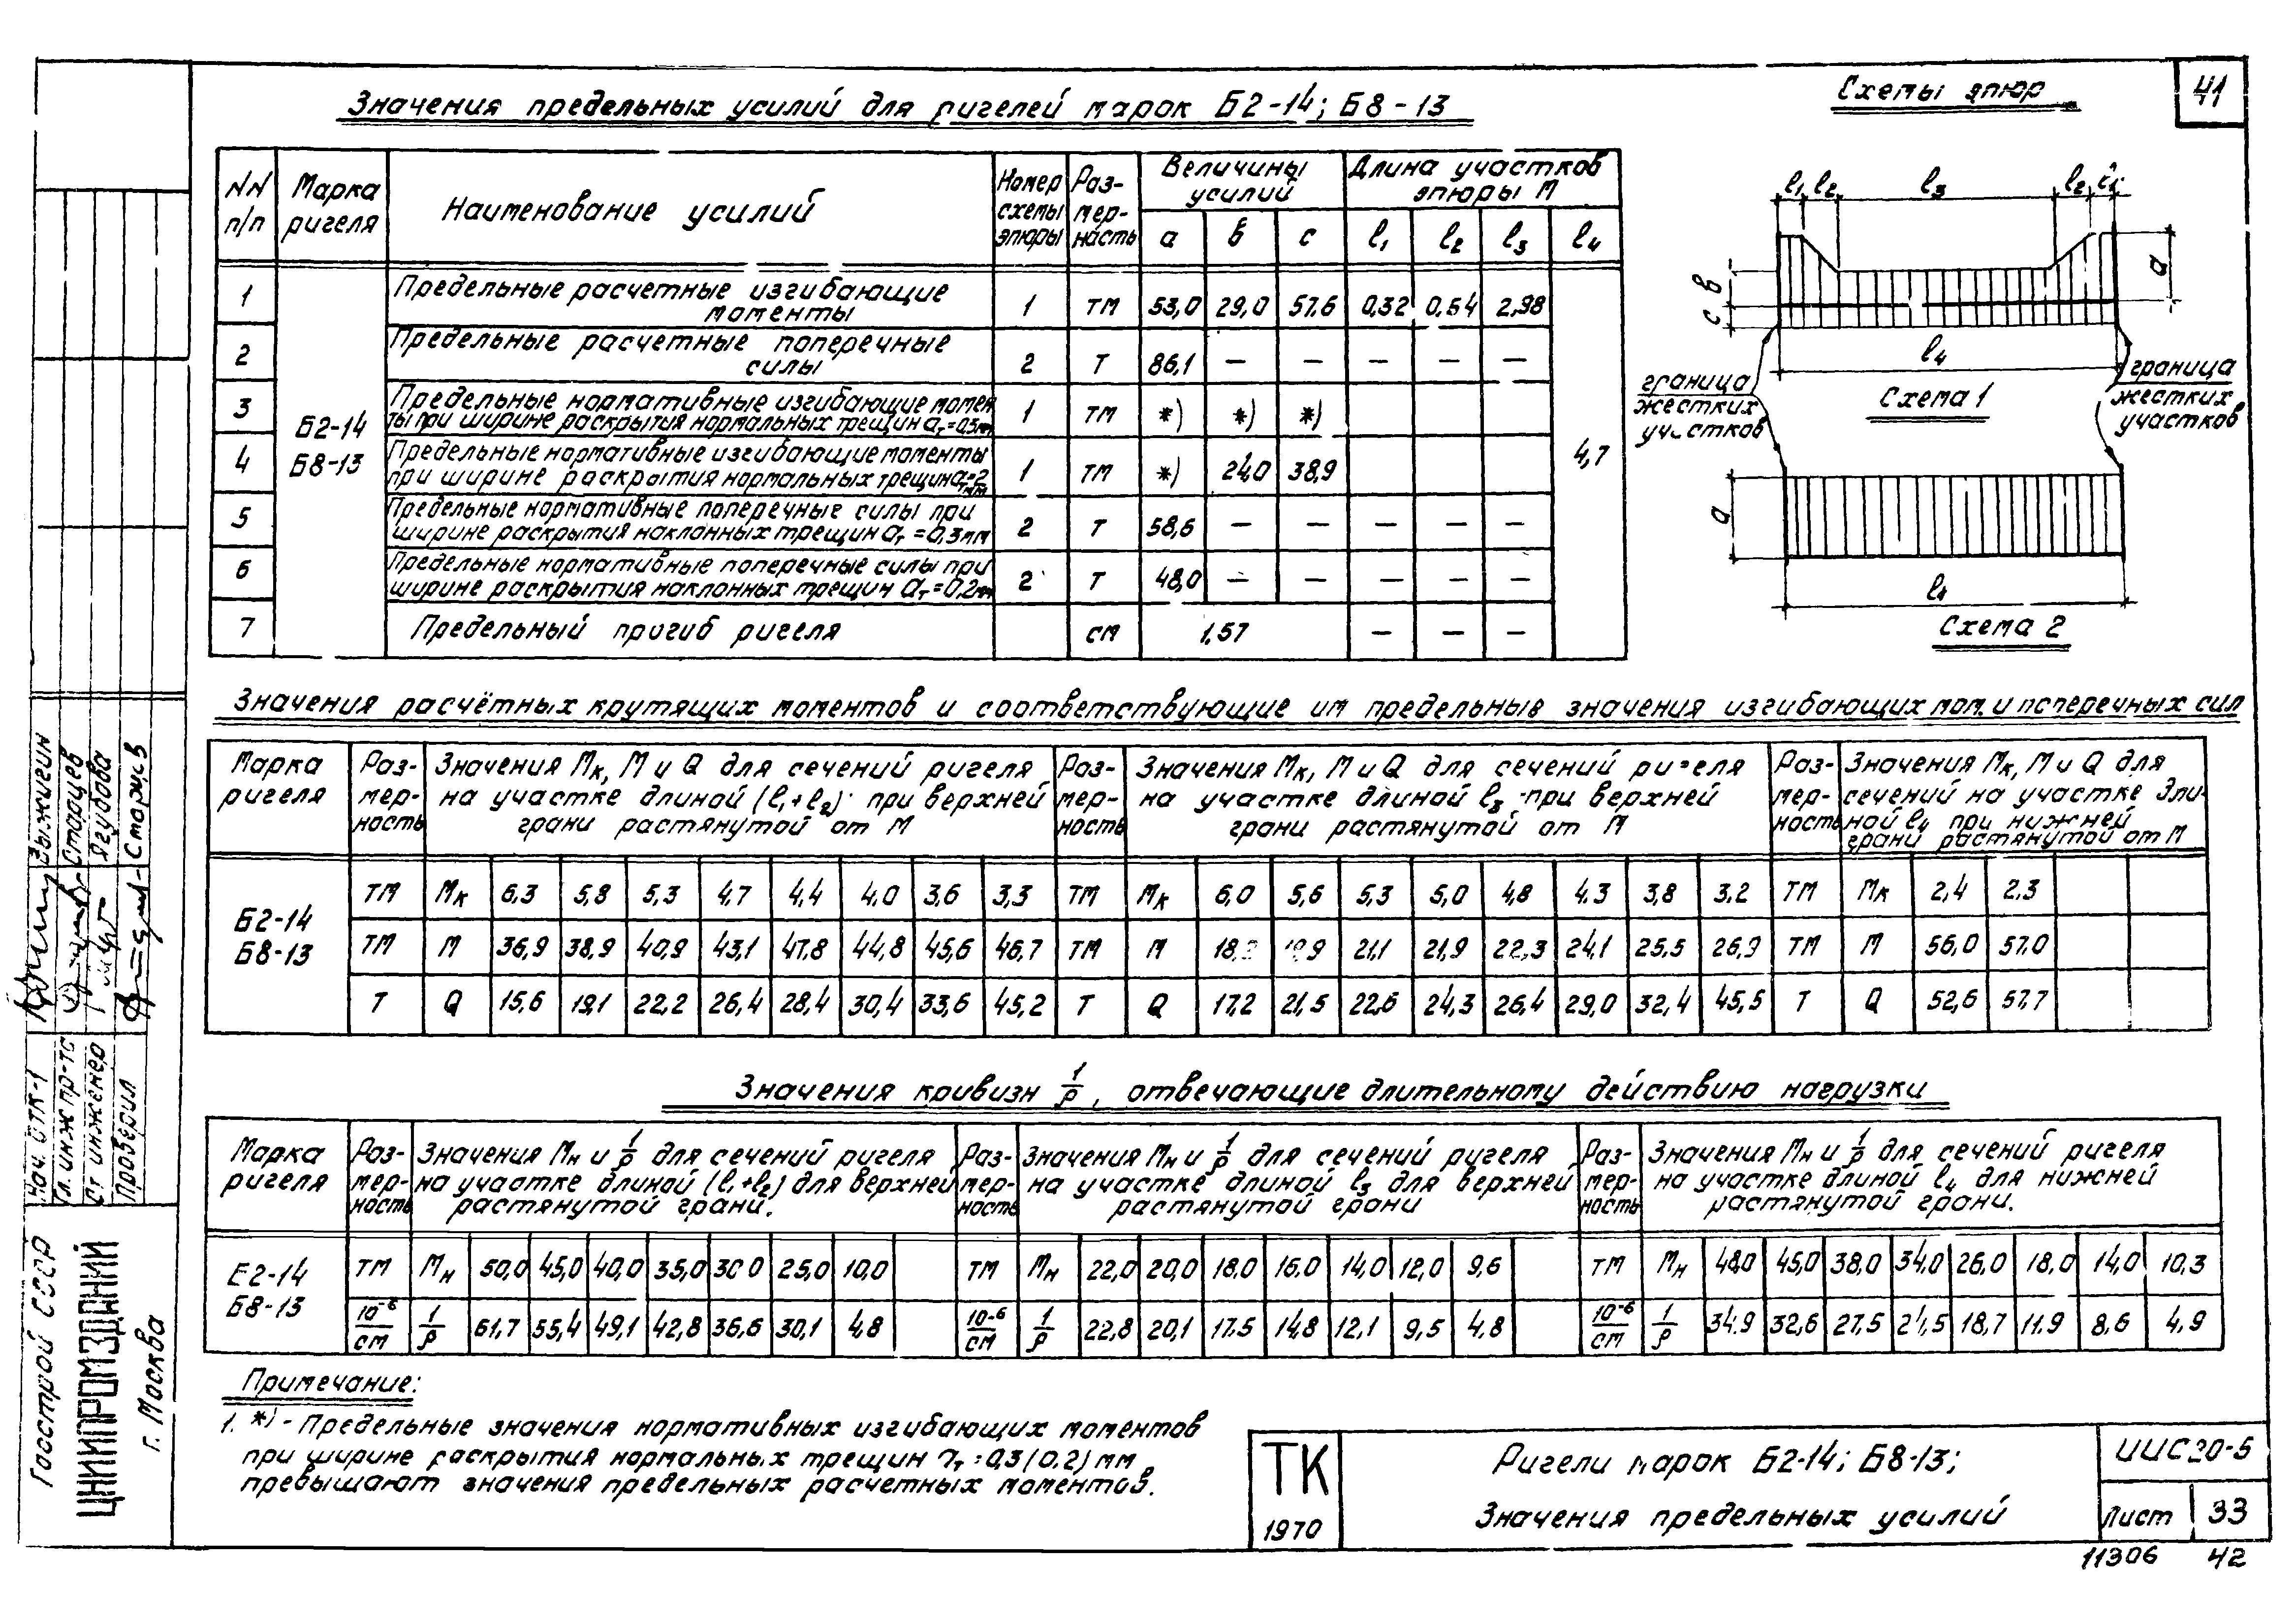 Значения предельных усилий для ригелей марок Б2-14; Б8-13
Схемы эпюр
41
NN п/п
Марка ригеля
Наименование усилий
Номер схемы эпюры
Размерность
Величины усилий
Длина участков эпюры М
a б c l1 l2 l3 l4
Б2-14
Б8-13
1 Предельные расчетные изгибающие моменты 1 тм 53,0 29,0 57,6 0,32 0,64 2,98
2 Предельные расчетные поперечные силы 2 т 86,1 — — — — —
3 Предельные нормативные изгибающие моменты при ширине раскрытия нормальных трещин aт=0,3мм 1 тм *) *) *)
4 Предельные нормативные изгибающие моменты при ширине раскрытия нормальных трещин 1 тм *) 24,0 38,9
4,7
5 Предельные нормативные поперечные силы при ширине раскрытия наклонных трещин aт=0,3мм 2 т 58,6 — — — — —
6 Предельные нормативные поперечные силы при ширине раскрытия наклонных трещин aт=0,2мм 2 т 48,0 — — — — —
7 Предельный прогиб ригеля см 1,57 — — —
l1 l2 l3 l2 l1
a
в
c
l4
граница жестких участков
Схема 1
граница жестких участков
a
l4
Схема 2
Значения расчётных крутящих моментов и соответствующие им предельные значения изгибающих мом. и поперечных сил
Марка ригеля
Размерность
Значения Мк, М и Q для сечений ригеля на участке длиной (l1+l2) при верхней грани растянутой от М
Размерность
Значения Мк, М и Q для сечений ригеля на участке длиной l3 при верхней грани растянутой от М
Размерность
Значения Мк, М и Q для сечений на участке длиной l4 при нижней грани растянутой от М
Б2-14
Б8-13
тм Мк 6,3 5,8 5,3 4,7 4,4 4,0 3,6 3,3 тм Мк 6,0 5,6 5,3 5,0 4,8 4,3 3,8 3,2 тм Мк 2,4 2,3
тм М 36,9 38,9 40,9 43,1 47,8 44,8 45,6 46,7 тм М 21,1 21,9 22,3 24,1 25,5 26,9 тм М 56,0 57,0
т Q 15,6 19,1 22,2 26,4 28,4 30,4 33,6 45,2 т Q 17,2 21,5 22,6 24,3 26,4 29,0 32,4 45,5 т Q 52,6 57,7
Значения кривизн 1/ρ, отвечающие длительному действию нагрузки
Марка ригеля
Размерность
Значения Мн и 1/ρ для сечений ригеля на участке длиной (l1+l2) для верхней растянутой грани.
Размерность
Значения Мн и 1/ρ для сечений ригеля на участке длиной l3 для верхней растянутой грани
Размерность
Значения Мн и 1/ρ для сечений ригеля на участке длиной l4 для нижней растянутой грани.
Б2-14
Б8-13
тм Мн 50,0 45,0 40,0 35,0 30,0 25,0 10,0 тм Мн 22,0 20,0 18,0 16,0 14,0 12,0 9,6 тм Мн 48,0 45,0 38,0 34,0 26,0 18,0 14,0 10,3
10⁻⁶/см 1/ρ 61,7 55,4 49,1 42,8 36,6 30,1 4,8 10⁻⁶/см 1/ρ 22,8 20,1 17,5 14,8 12,1 9,5 4,8 10⁻⁶/см 1/ρ 34,9 32,6 27,5 24,5 18,7 11,9 8,6 4,9
Примечание:
1. *) - Предельные значения нормативных изгибающих моментов
при ширине раскрытия нормальных трещин aт=0,3(0,2) мм
превышают значения предельных расчетных моментов.
ТК
1970
Ригели марок Б2-14; Б8-13;
Значения предельных усилий
ИИС20-5
Лист 33
11306 42
Нач. ОТК-1 Выжигин
Гл. инж пр-та Старцев
Ст инженер Ягубова
Проверил
Госстрой СССР
ЦНИИПРОМЗДАНИЙ
г. Москва